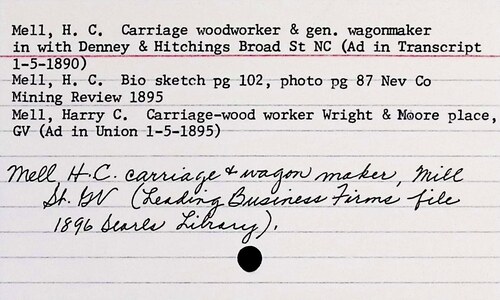 Mell, H. C.  Carriage woodworker & gen. wagonmaker
in with Denney & Hitchings Broad St NC (Ad in Transcript
1-5-1890)
Mell, H. C.  Bio sketch pg 102, photo pg 87 Nev Co
Mining Review 1895
Mell, Harry C.  Carriage-wood worker Wright & Moore place,
GV (Ad in Union 1-5-1895)
Mell, H.C. carriage & wagon maker, Mill
St. GV (Leading Business Firms file
1896 Searls Library).